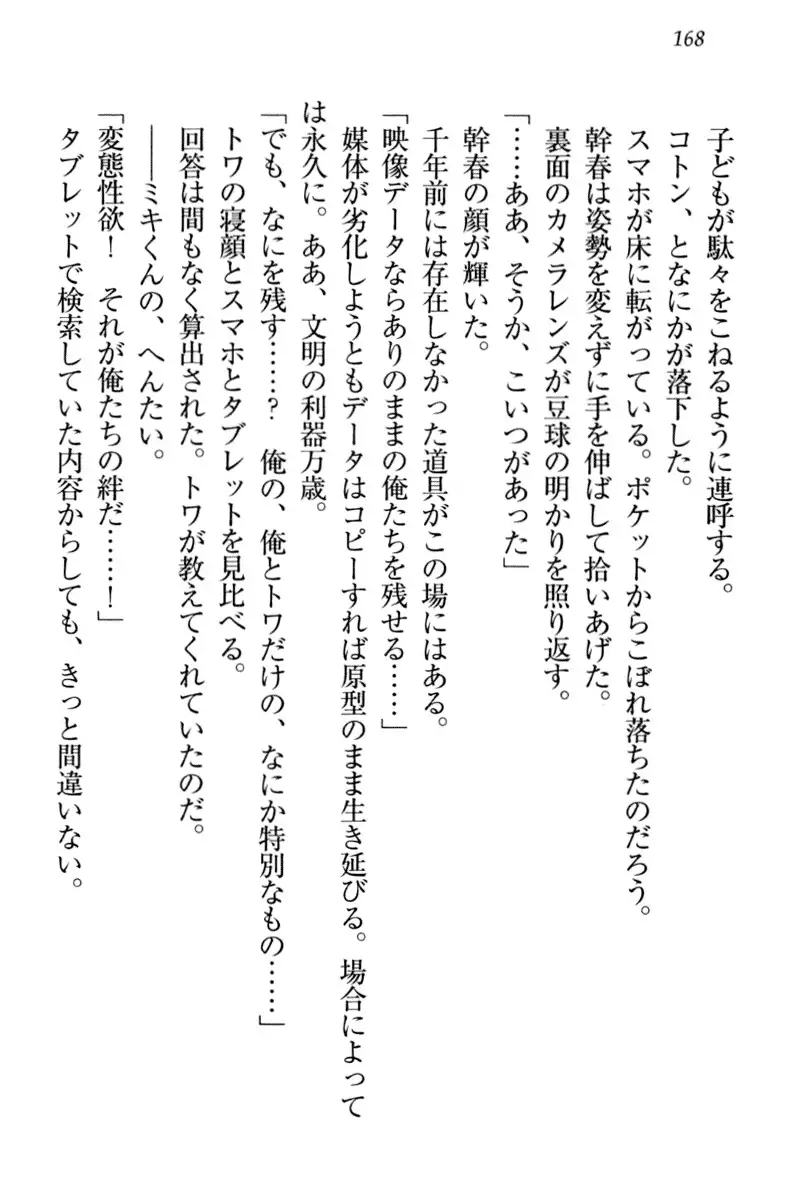 168
子どもが駄々をこねるように連呼する。
コトン、となにかが落下した。
スマホが床に転がっている。ポケットからこぼれ落ちたのだろう。
幹春は姿勢を変えずに手を伸ばして拾いあげた。
裏面のカメラレンズが豆球の明かりを照り返す。
「……ああ、そうか、こいつがあった」
幹春の顔が輝いた。
千年前には存在しなかった道具がこの場にはある。
「映像データならありのままの俺たちを残せる……」
媒体が劣化しようともデータはコピーすれば原型のまま生き延びる。場合によって
は永久に。ああ、文明の利器万歳。
「でも、なにを残す……？　俺の、俺とトワだけの、なにか特別なもの……」
トワの寝顔とスマホとタブレットを見比べる。
回答は間もなく算出された。トワが教えてくれていたのだ。
――ミキくんの、へんたい。
「変態性欲！　それが俺たちの絆だ……！」
タブレットで検索していた内容からしても、きっと間違いない。